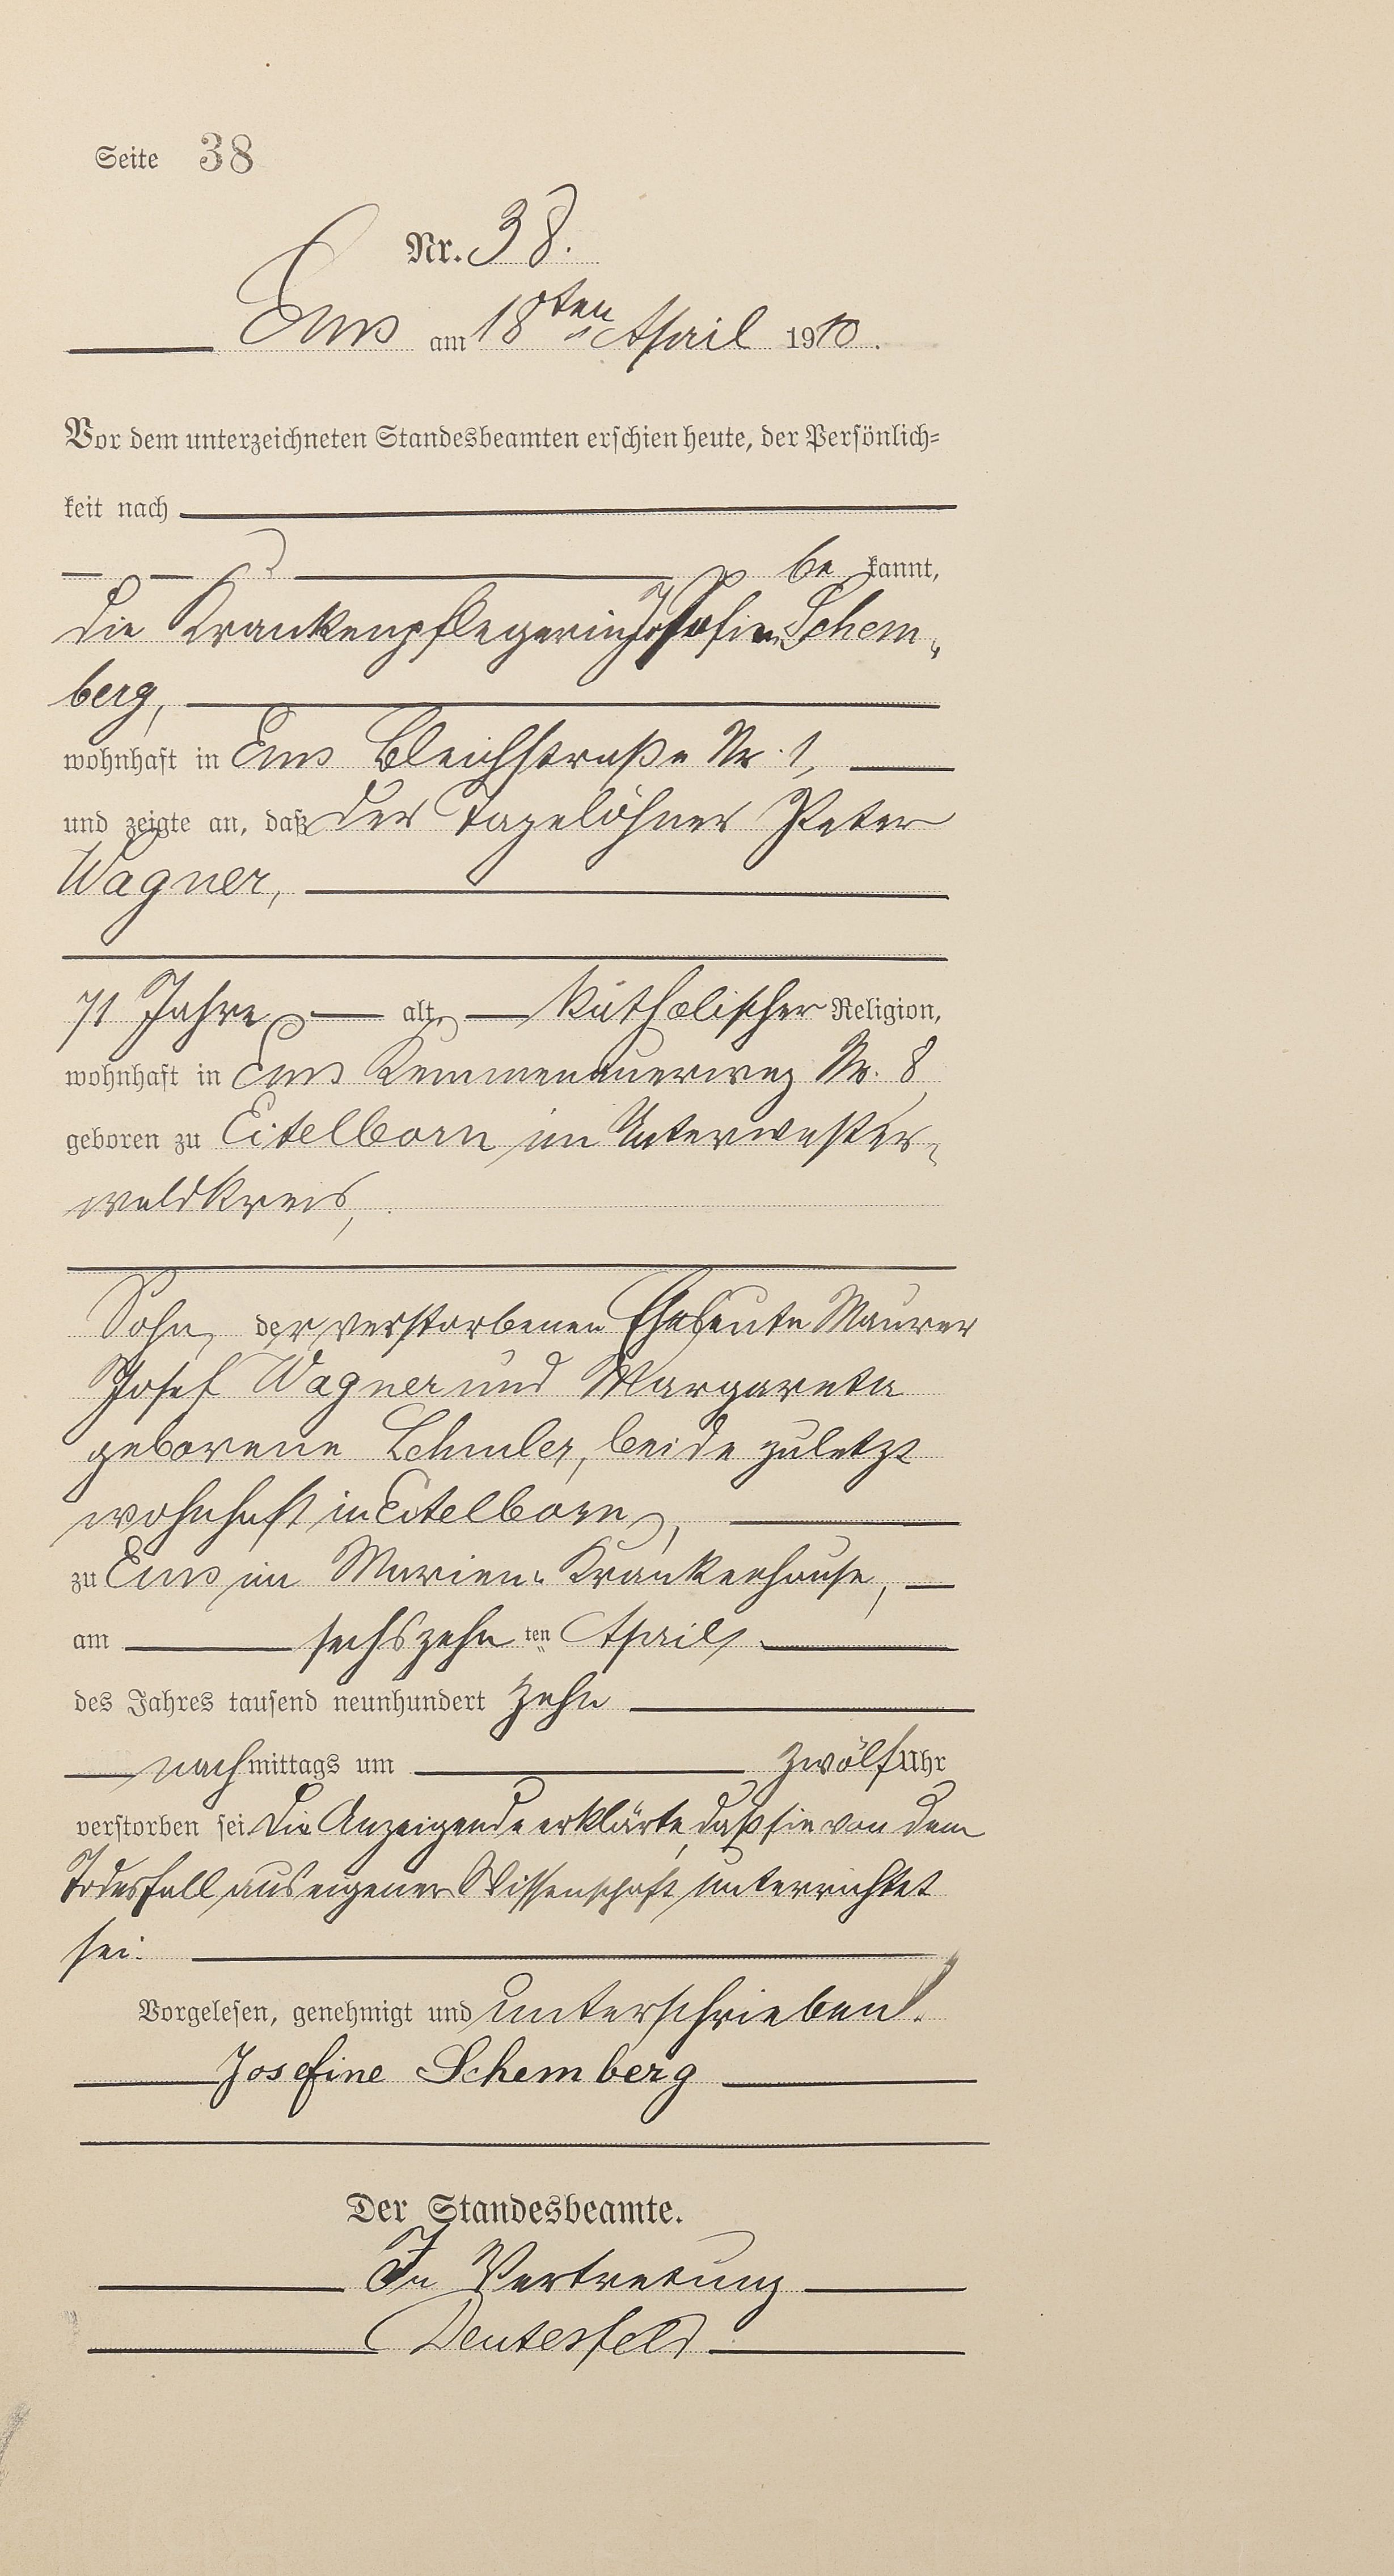 Seite 38
Nr. 38.
Ems am 18ten April 1910.
Vor dem unterzeichneten Standesbeamten erschien heute, der Persönlich=
keit nach
be kannt,
die Krankenpflegerin Schem-
berg,
wohnhaft in Ems Bleichstraße Nr. 1,
und zeigte an, daß der Tagelöhner Peter
Wagner,
71 Jahre alt, katholischer Religion,
wohnhaft in Ems Kemmenauerweg Nr. 8
geboren zu Eitelborn im Unterwester-
waldkreis,
Sohn der verstorbenen Eheleute Maurer
Josef Wagner und Margareta
geborene beide zuletzt
wohnhaft in Eitelborn,
zu Ems im Marien-Krankenhause,
am sechszehn ten April
des Jahres tausend neunhundert zehn
nachmittags um zwölf Uhr
verstorben sei. Die Anzeigende erklärte, daß sie von dem
Todesfall aus eigener Wissenschaft unterrichtet
sei.
Vorgelesen, genehmigt und unterschrieben.
Josefine Schemberg
Der Standesbeamte.
In Vertretung